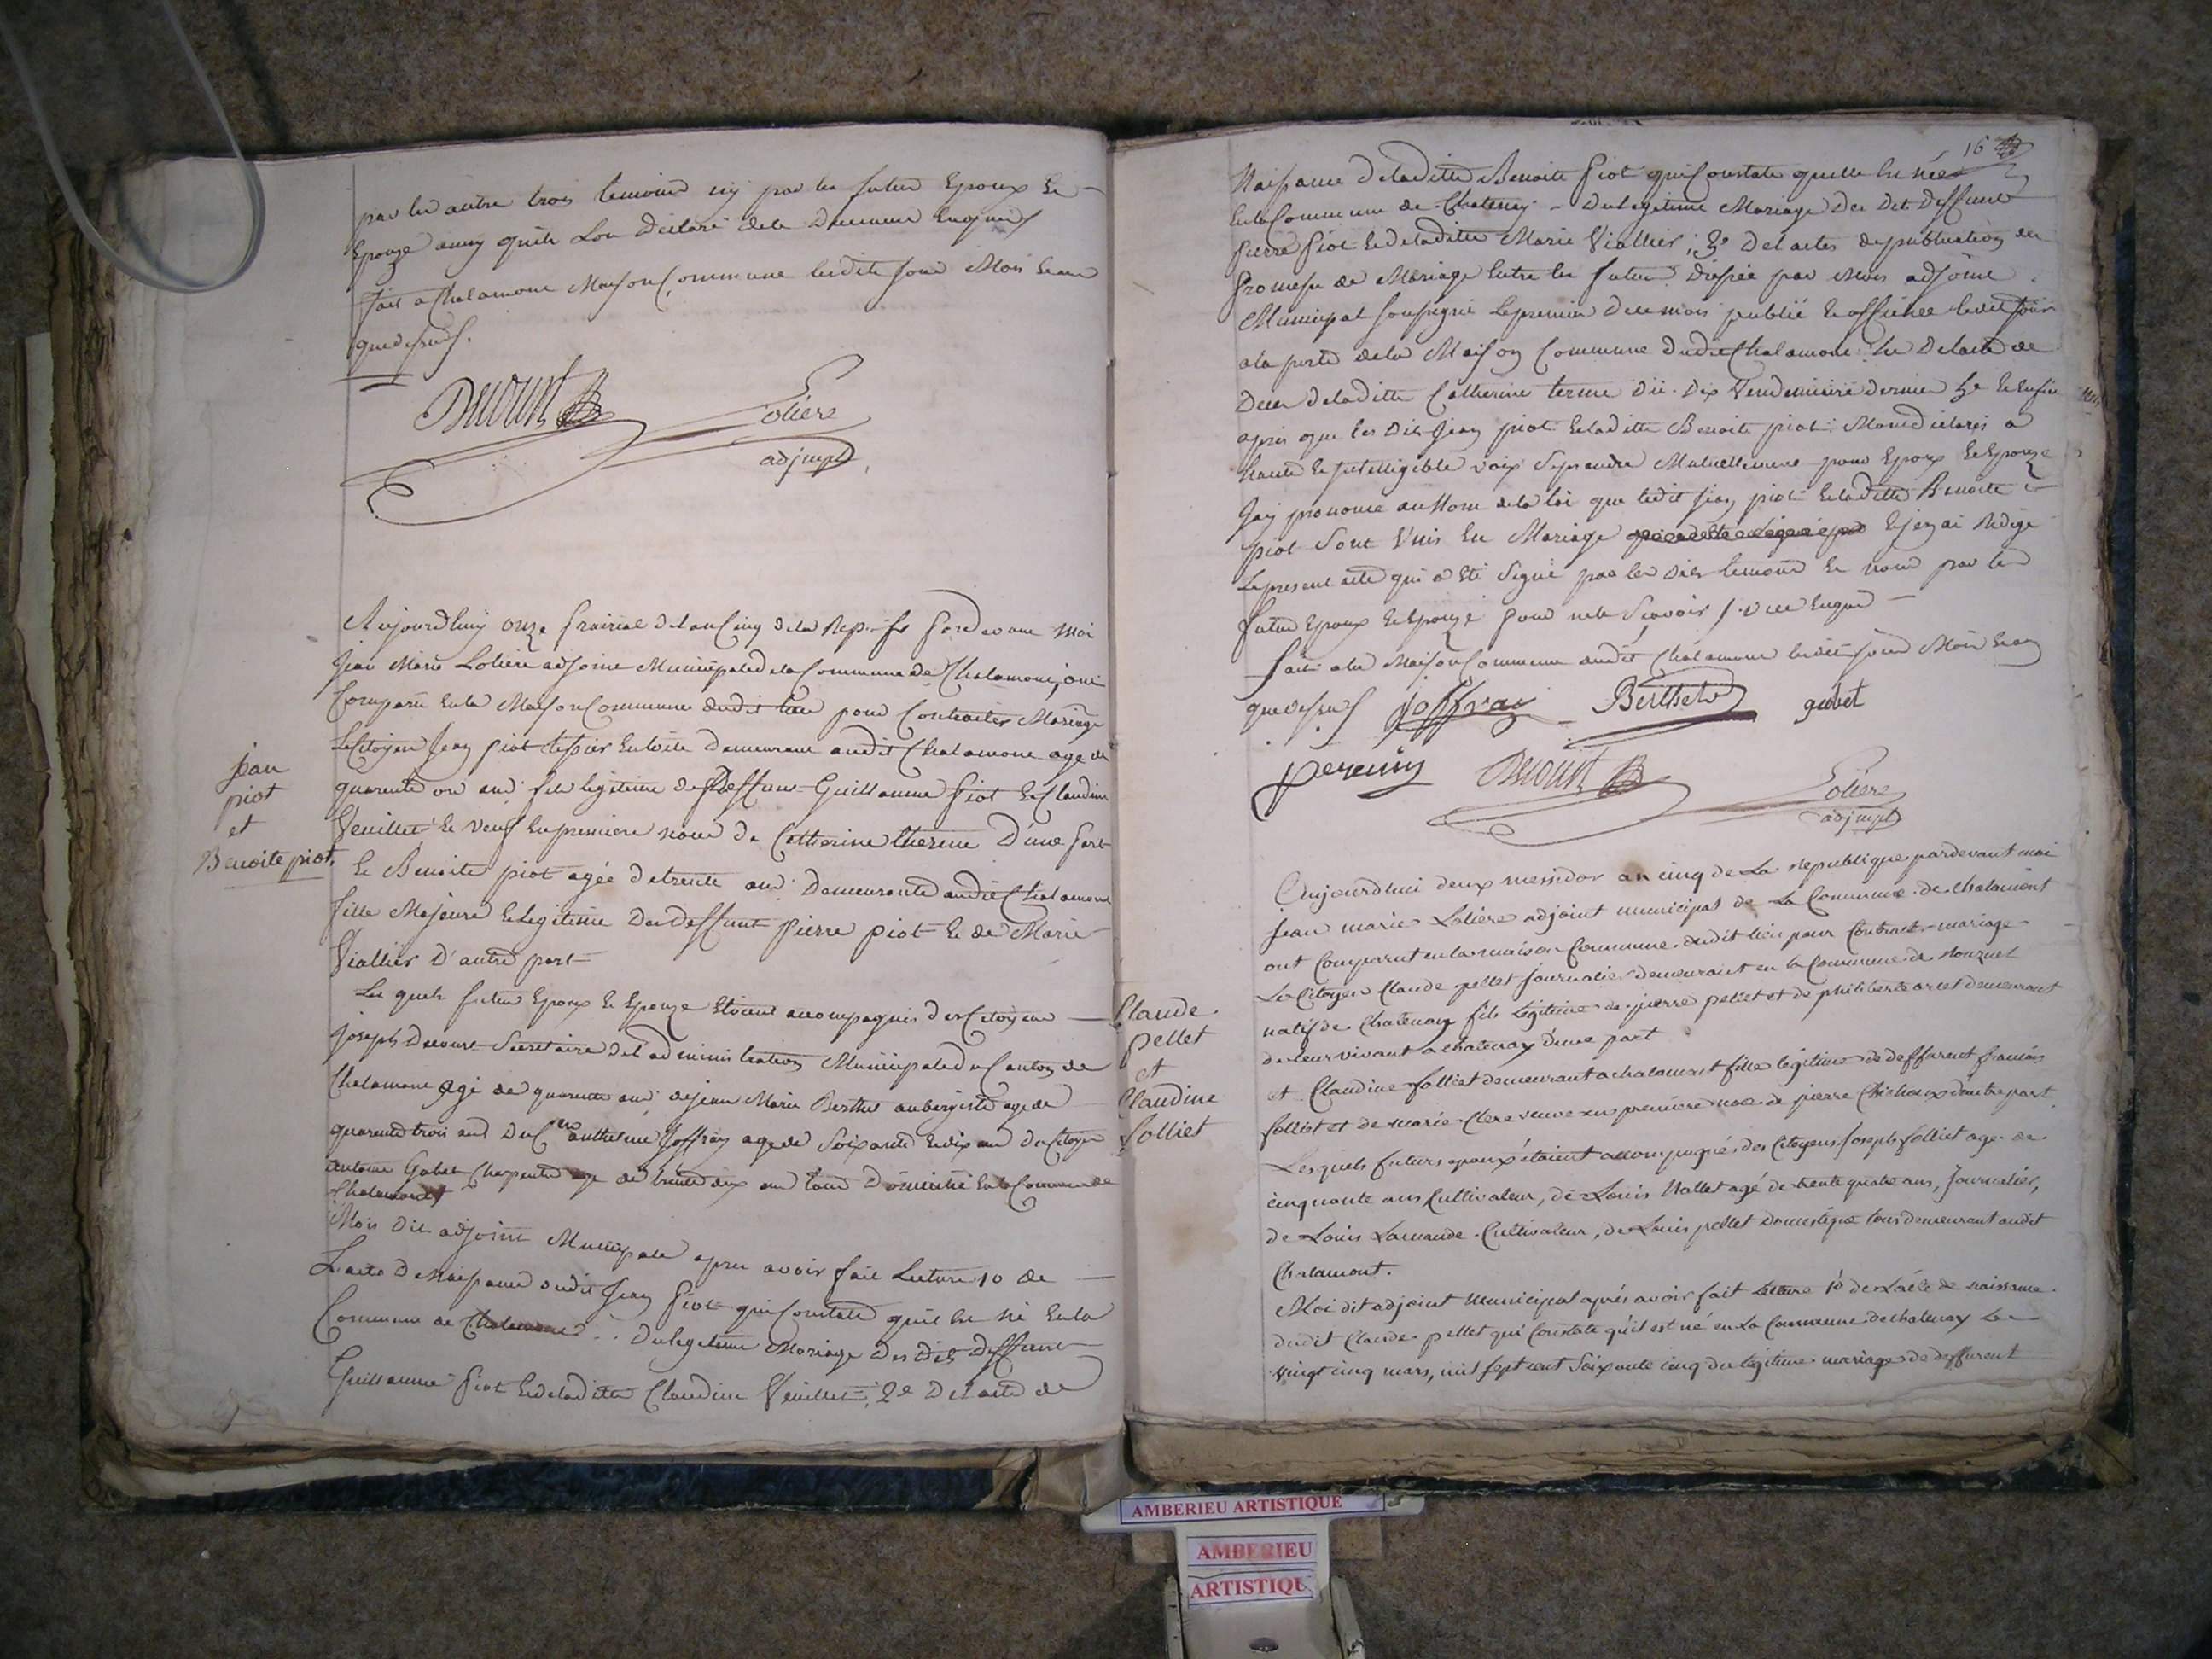 par les autre trois temoins ny par les futur Epoux Et
Epouze aussy quils Lon Déclaré de ce Duement Enquis
fait a Chalamont Maison Commune lesdits Jour Mois Et an
que dessus.
Decourt
Lotiere
adj mpl
Aujourdhuy onze prairial de l an Cinq de la Rep. fse pardevant moi
Jean Marie Lotiere adjoint Municipal de la Commune de Chalamont, ont
Comparu En la Maison Commune dudit lieu pour Contracter Mariage
Le Citoyen Jean piot demeurant audit Chalamont age de
quarente ans fils legitime de deffunt Guillaume Piot Et Claudine
Veuillet Et veuf En premiere noce de Catherine therme D'une part
Jean
piot
et
Benoite piot.
Et Benoite piot agée de trente ans Demeurante audit Chalamont
fille Majeure Et legitime De deffunt Pierre piot Et de Marie
Viallier D'autre part
Les quels futur Epoux Et Epouze Etoient accompagnés des Citoyens
Joseph Decourt Secretaire de l'administration Municipale du Canton de
Chalamont agé de quarente ans de Jean Marie Berthet aubergiste age de
quarente trois ans Du Cen anthelme Joffray age de Soixante Et dix ans Du Citoyen
antoine Gobet Charpentier age de trente deux ans tous Domicilié En la Commune de
Chalamont
Moi Dit adjoint Municipale apres avoir fait Lecture 1o de
L acte De Naissance dudit Jean Piot qui Constate quil Est né En la
Commune de Chalamont Du legitime Mariage Des Dits Deffunt
Guillaume Piot Et de laditte Claudine Veuillet; 2o De L acte de
16
Naissance De laditte Benoite Piot qui Constate quelle Est née
En la Commune de Chatenay Du Legitime Mariage Des Dit Deffunt
Pierre Piot Et de laditte Marie Viallier; 3o De l actes de publication de
Promesse de Mariage Entre les futur Dressée par Mois adjoint
Municipal Soussigné Le premier De ce mois publié Et affichée ledit Jour
a la porte de la Maison Commune dudit Chalamont De L acte de
Deces De laditte Catherine terme Du Dix Vendemiaire dernier Et Enfin
apres que les Dits Jean piot Et laditte Benoite piot Mont déclarés a
haute Et Intelligible voix Se prendre Mutuellement pour Epoux Et Epouze
Jay prononcé au Nom de la loi que ledit Jean piot Et laditte Benoite
piot Sont Unis En Mariage Et jen ai Redigé
Le present acte qui a Eté Signé par les Dits temoins Et non par les
futur Epoux Et Epouze pour ne le Scavoir Enquis
fait a la Maison Commune dudit Chalamont lesdit jour Mois Et an
que dessus Joffray Berthet gobet
Decourt
Lotiere
adj mpl
Aujourdhui deux messidor an cinq de La republique pardevant moi
Jean marie Lotiere adjoint municipal de La Commune de chalamont
ont Comparut en la maison Commune dudit lieu pour Contract mariage
Le Citoyen Claude pellet Journalier demeurant en la Commune de
natif de Chatenay fils légitime de pierre pellet et de philiberte demeurant
de leur vivant a chatenay d'une part
Claude
Pellet
et
Claudine
folliet
et Claudine folliet demeurant a chalamont fille légitime de deffunt francois
folliet et de marie Clere veuve en premiere noce de pierre d'autre part
Les quels futurs epoux étaient accompagnés des Citoyens Joseph folliet age de
cinquante ans Cultivateur, de Louis Nallet agé de trente quatre ans, Journalier,
de Louis Lamande Cultivateur, de Louis pellet Domestique tous demeurant audit
Chalamont.
Moi dit adjoint Municipal après avoir fait Lecture 1o de L'acte de naissance
dudit Claude pellet qui Constate qu'il est né en La Commune de chatenay Le
Vingt cinq mars, mil sept cent Soixante cinq du légitime mariage de deffunt
AMBERIEU ARTISTIQUE
AMBERIEU
ARTISTIQUE